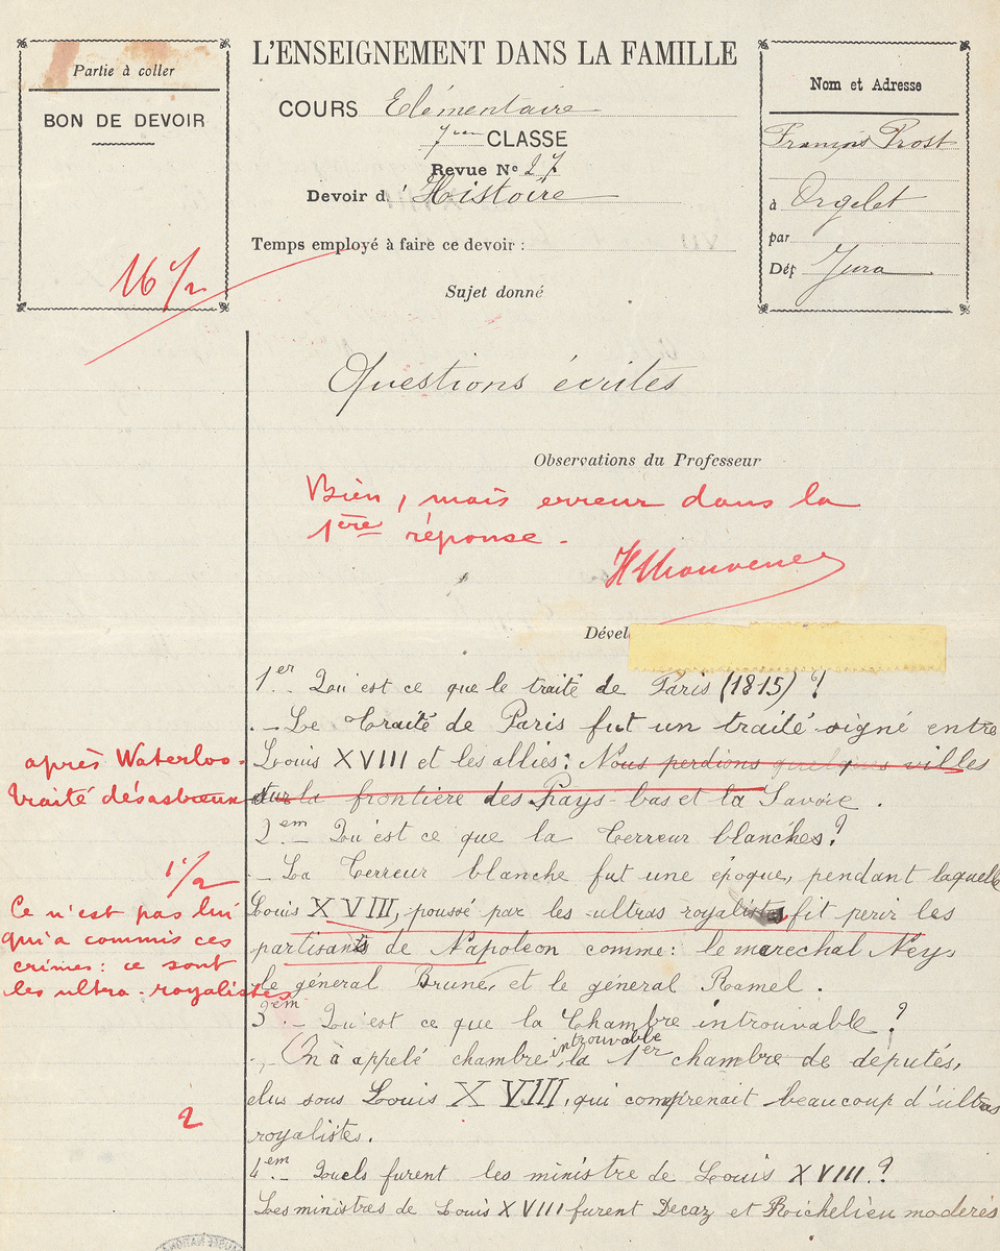 L'ENSEIGNEMENT DANS LA FAMILLE
Partie à coller
BON DE DEVOIR
16 1/2
COURS Elémentaire
7ème CLASSE
Revue No 27
Devoir d'Histoire
Temps employé à faire ce devoir :
Sujet donné
Nom et Adresse
François Prost
à Orgelet
par
Dép Jura
Questions écrites
Observations du Professeur
Bien, mais erreur dans la
1ère réponse.
Dével
1er.- Qu'est ce que le traité de Paris (1815) ?
.- Le Traité de Paris fut un traité signé entre
Louis XVIII et les alliés: Nous perdions quelques villes
sur la frontière des Pays-bas et la Savoie.
après Waterloo.
traité désastreux
2em.- Qu'est ce que la Terreur blanches?
.- La Terreur blanche fut une époque, pendant laquelle
Louis XVIII, poussé par les ultras royalistes fit perir les
partisants de Napoléon comme: le marechal Ney,
le général Brune, et le général Ramel.
1 1/2
Ce n'est pas lui
qui a commis ces
crimes: ce sont
les ultra-royalistes
3em.- Qu'est ce que la Chambre introuvable ?
.- On à appelé chambre introuvable, la 1er chambre de deputés,
elus sous Louis XVIII, qui comprenait beaucoup d'ultras
royalistes.
2
4em.- Quels furent les ministre de Louis XVIII.?
Les ministres de Louis XVIII furent Decaz et Roichelieu moderés